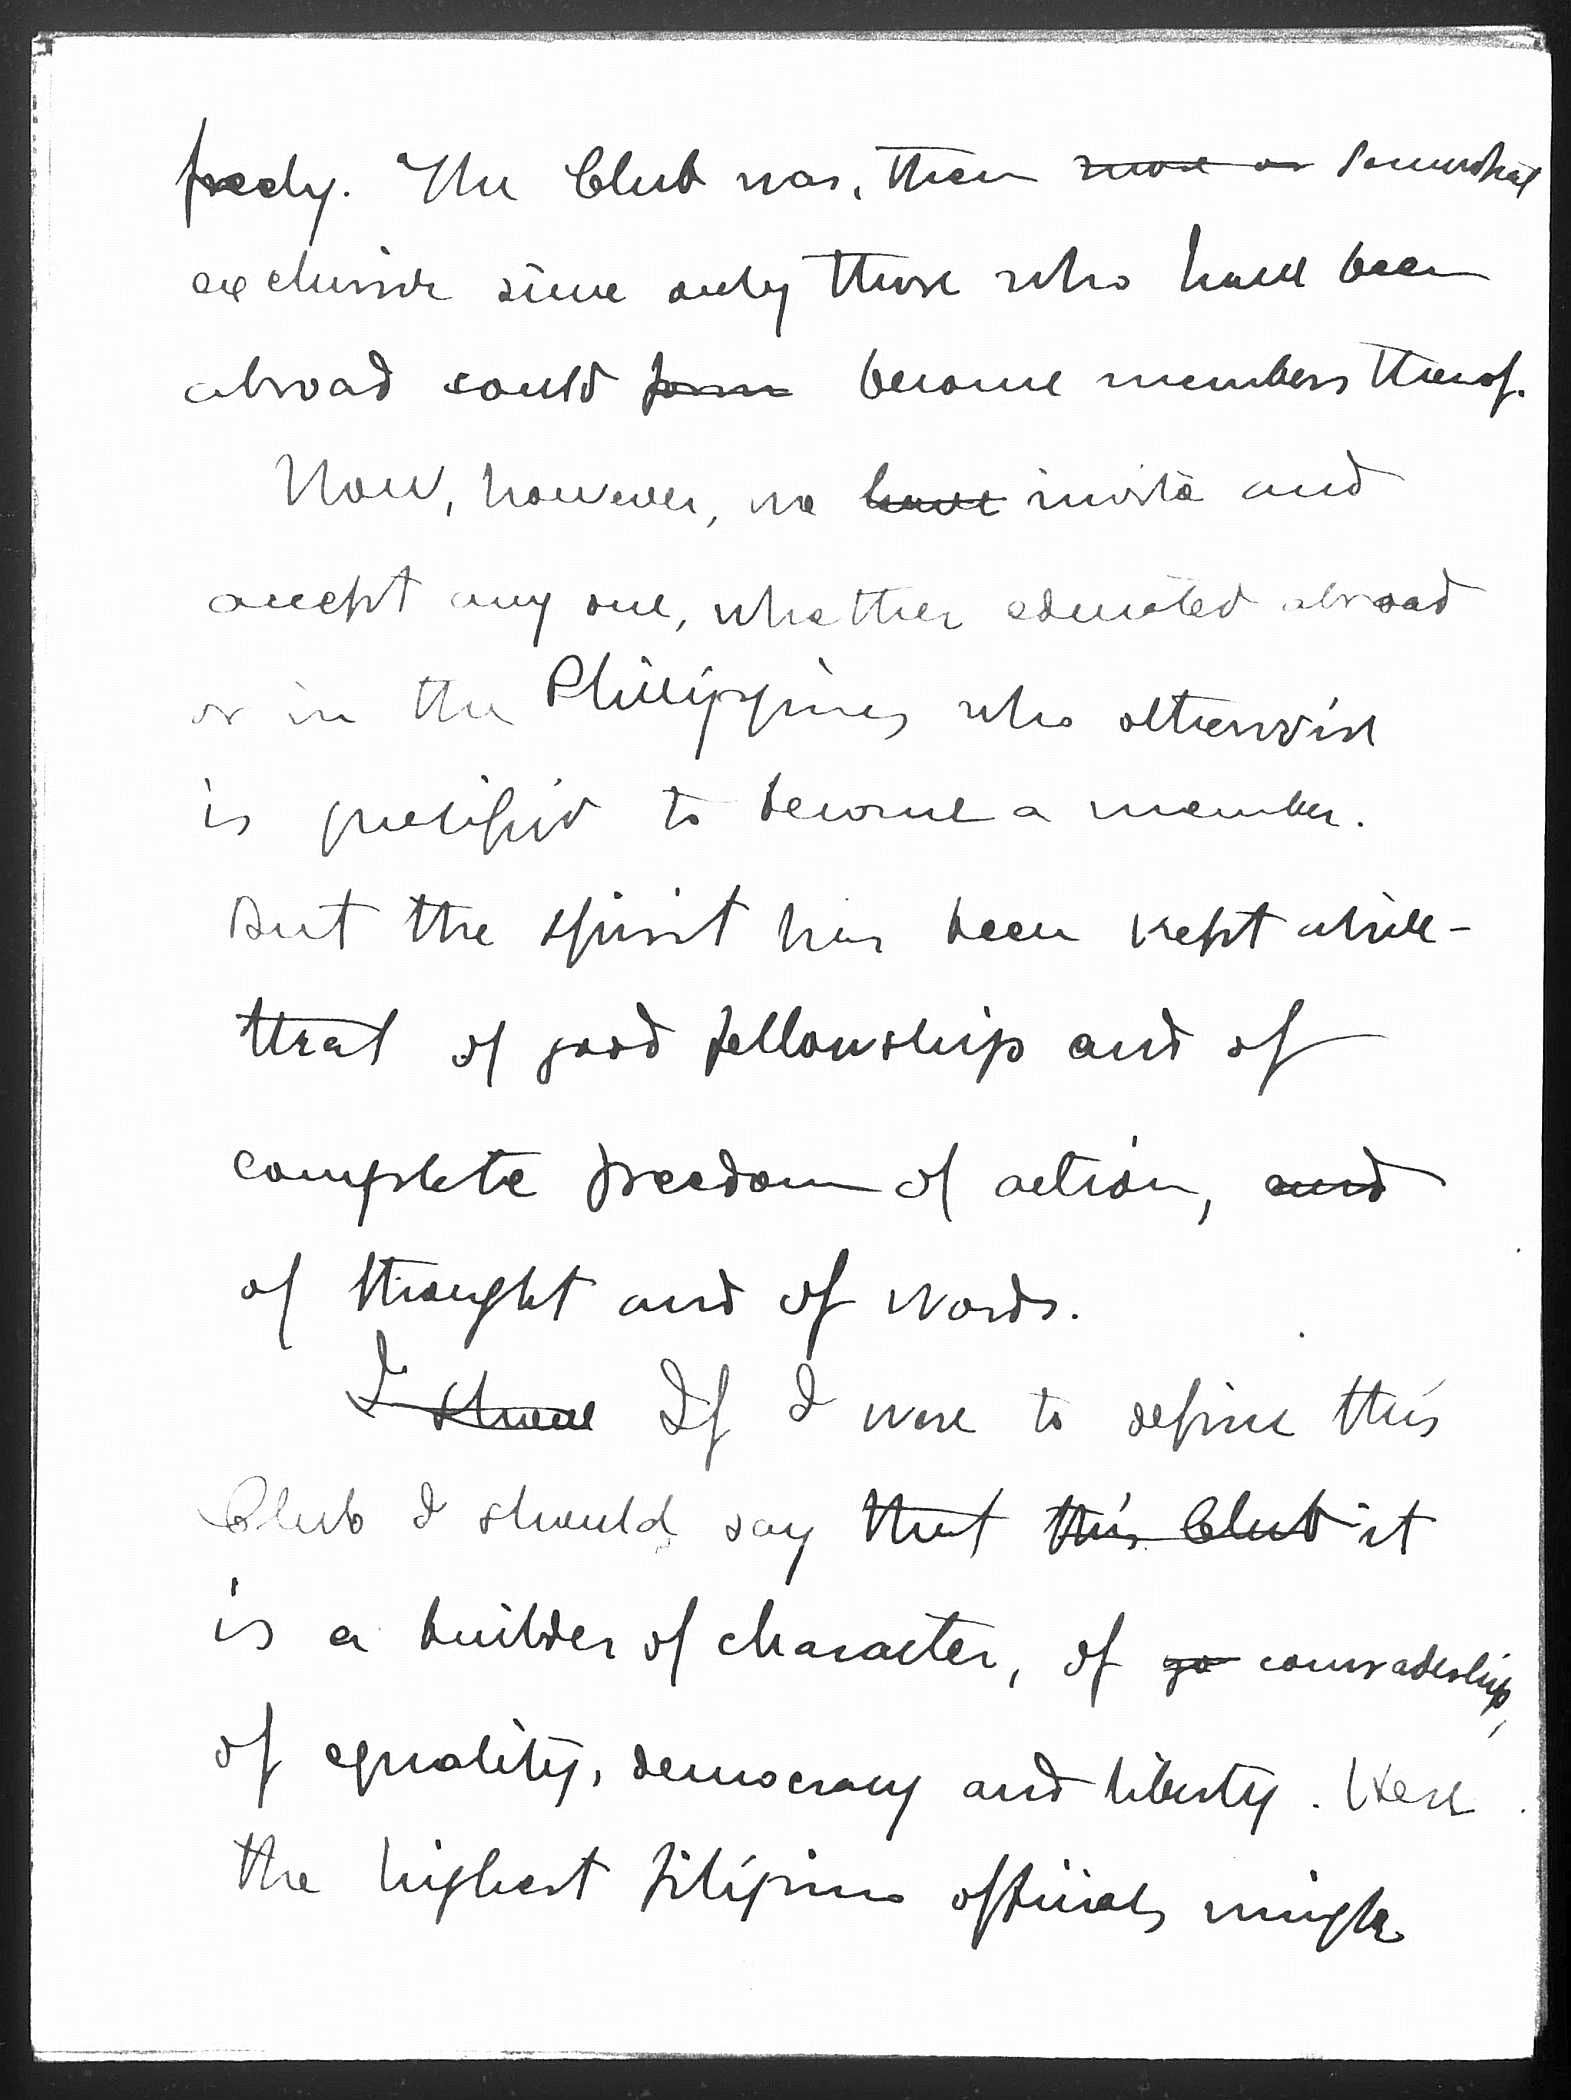 freely. The Club was, then ~~more or~~ somewhat
exclusive since only those who have been
abroad could ~~form~~ become members thereof.
Now, however, we ~~have~~ invite and
accept any one, whether educated abroad
or in the Philippines who otherwise
is qualified to become a member.
But the spirit has been kept alive -
that of good fellowship and of
complete freedom of action, ~~and~~
of thought and of words.
~~I should~~ If I were to define this
Club I should say that ~~this Club~~ it
is a builder of character, of ~~go~~ comradeship,
of equality, democracy and liberty. Here
the highest Filipino officials mingle